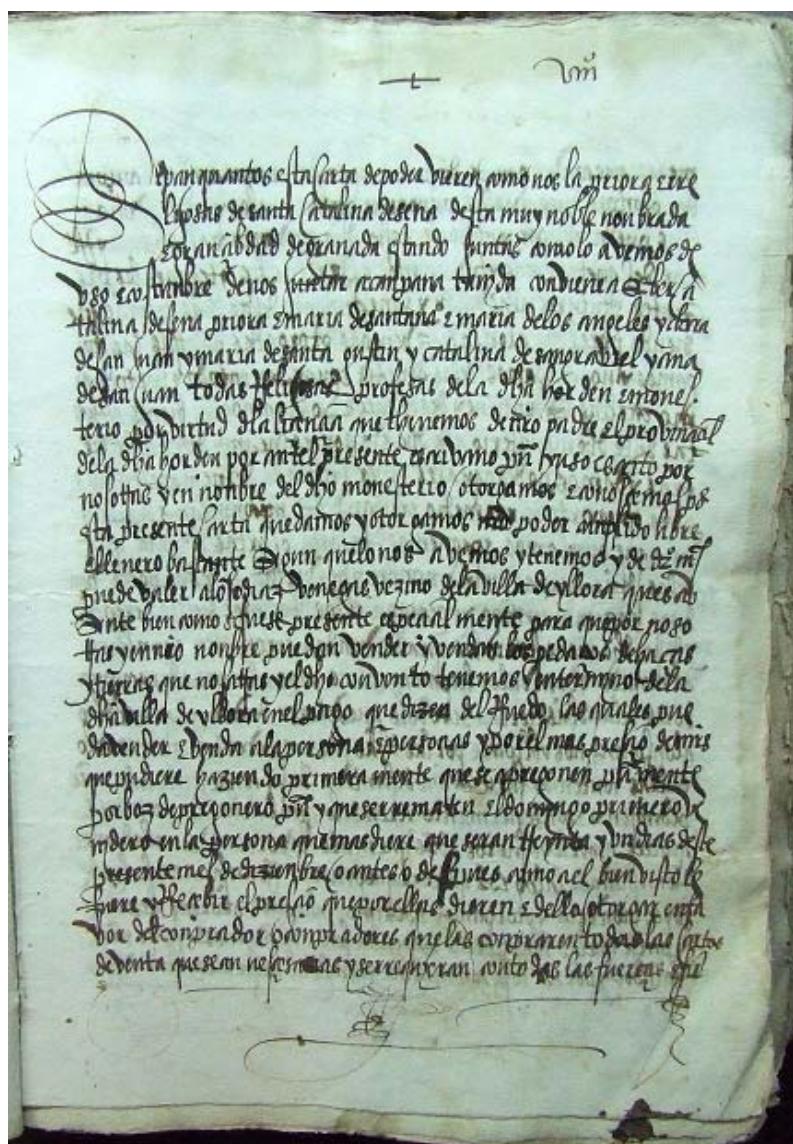 viii
Sepan quantos esta carta de poder vieren como nos la priora e re
ligiosas de santa catalina de sena desta muy noble nonbrada
e gran çibdad de granada estando juntas como lo avemos de
uso e costunbre de nos juntar a canpana tanyda conviene a saber ca
talina de sena priora e maria de santana e maria de los angeles y
de san juan y maria de santa gustin y catalina de san grabiel y ana
de san juan todas religiosas profesas de la dha horden e mones
terio por virtud de la liçençia que thenemos de nro padre el provinçial
de la dha horden por antel presente escrivano puco yuso escrito por
nosotras y en nonbre del dho monesterio otorgamos e conosçemos por
esta presente carta que damos y otorgamos poder conplido libre
e llenero bastante segun que lo nos avemos y tenemos y de
puede valer a alo diaz venegas vezino de la villa de yllora ques ab
sente bien como si fuese presente espeçialmente para que por noso
tras y en nro nonbre puedan vender y vendan los pedaços de haças
y tierras que nosotras y el dho convento tenemos en termino de la
dha villa de yllora en el pago que dizen del Ruedo las quales pue
da vender e venda a la persona e personas y por el mas presçio de mrs
que pudiere haziendo primeramente que se apregonen pucamente
por boz de pregonero puco y que se rrematen el domingo primero ve
nidero en la persona que mas diere que seran treynta y un dias deste
presente mes de dizienbre o antes o despues como a el bien visto le
fuere y Resçebir el presçio que por ellas dieren e dello otorgar en fa
vor del conprador o conpradores que las conpraren todas las cartas
de venta que sean nesçesarias y se rrequieran con todas las fuerças